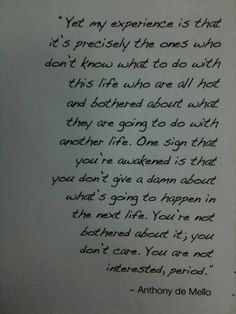 "Yet my experience is that
it's precisely the ones who
don't know what to do with
this life who are all hot
and bothered about what
they are going to do with
another life. One sign that
you're awakened is that
you don't give a damn about
what's going to happen in
the next life. You're not
bothered about it; you
don't care. You are not
interested, period."
~ Anthony de Mello